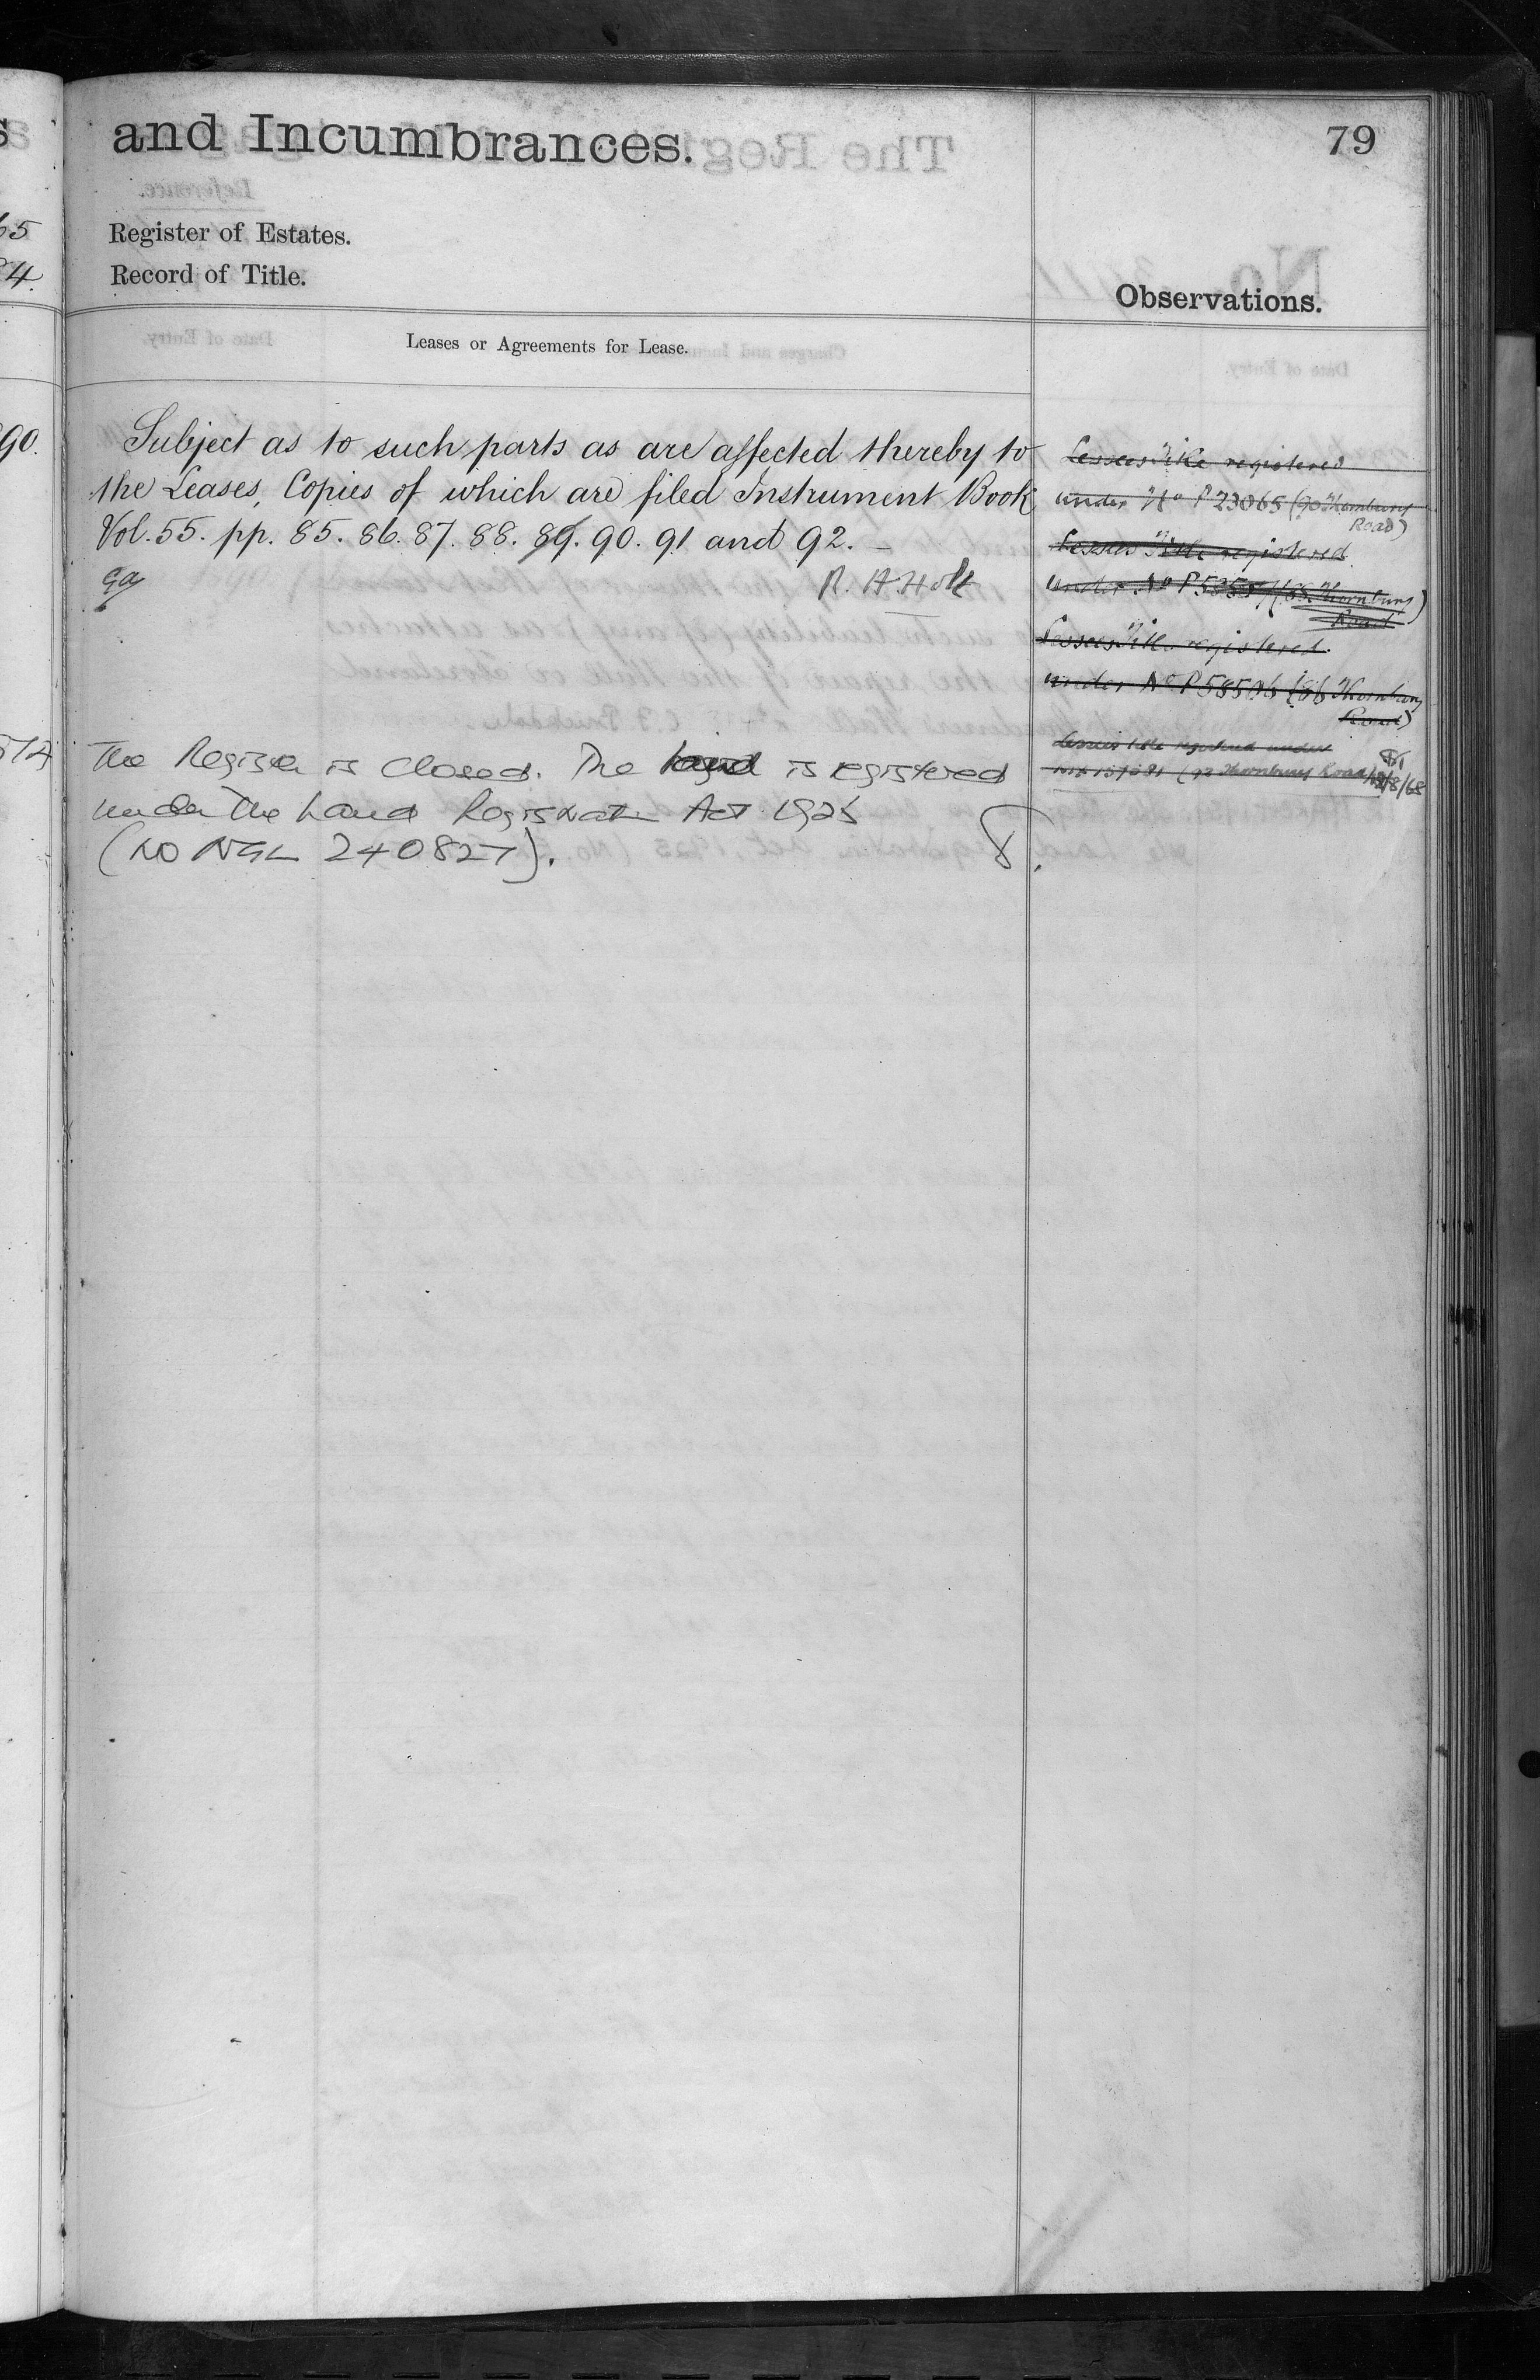 and Incumbrances.
79
Register of Estates.
Record of Title.
Observations.
Leases or Agreements for Lease.
Subject as to such parts as are affected thereby to
the Leases, Copies of which are filed Instrument Book
Vol. 55. pp. 85. 86. 87. 88. 89. 90. 91 and 92.
R. H. Holt
The Register is closed. The land is registered
under the Land Registration Act 1925
(NO NGL 240827).
Lessees Title registered
under No P 23065 (90 Thornbury
Road)
Lessees Title registered
under No P (88 Thornbury
Road)
Lessees Title registered
under No P 58506 (86 Thornbury
Road)
Lessees title registered under
(92 Thornbury Road) /8/68
65
24.
90.